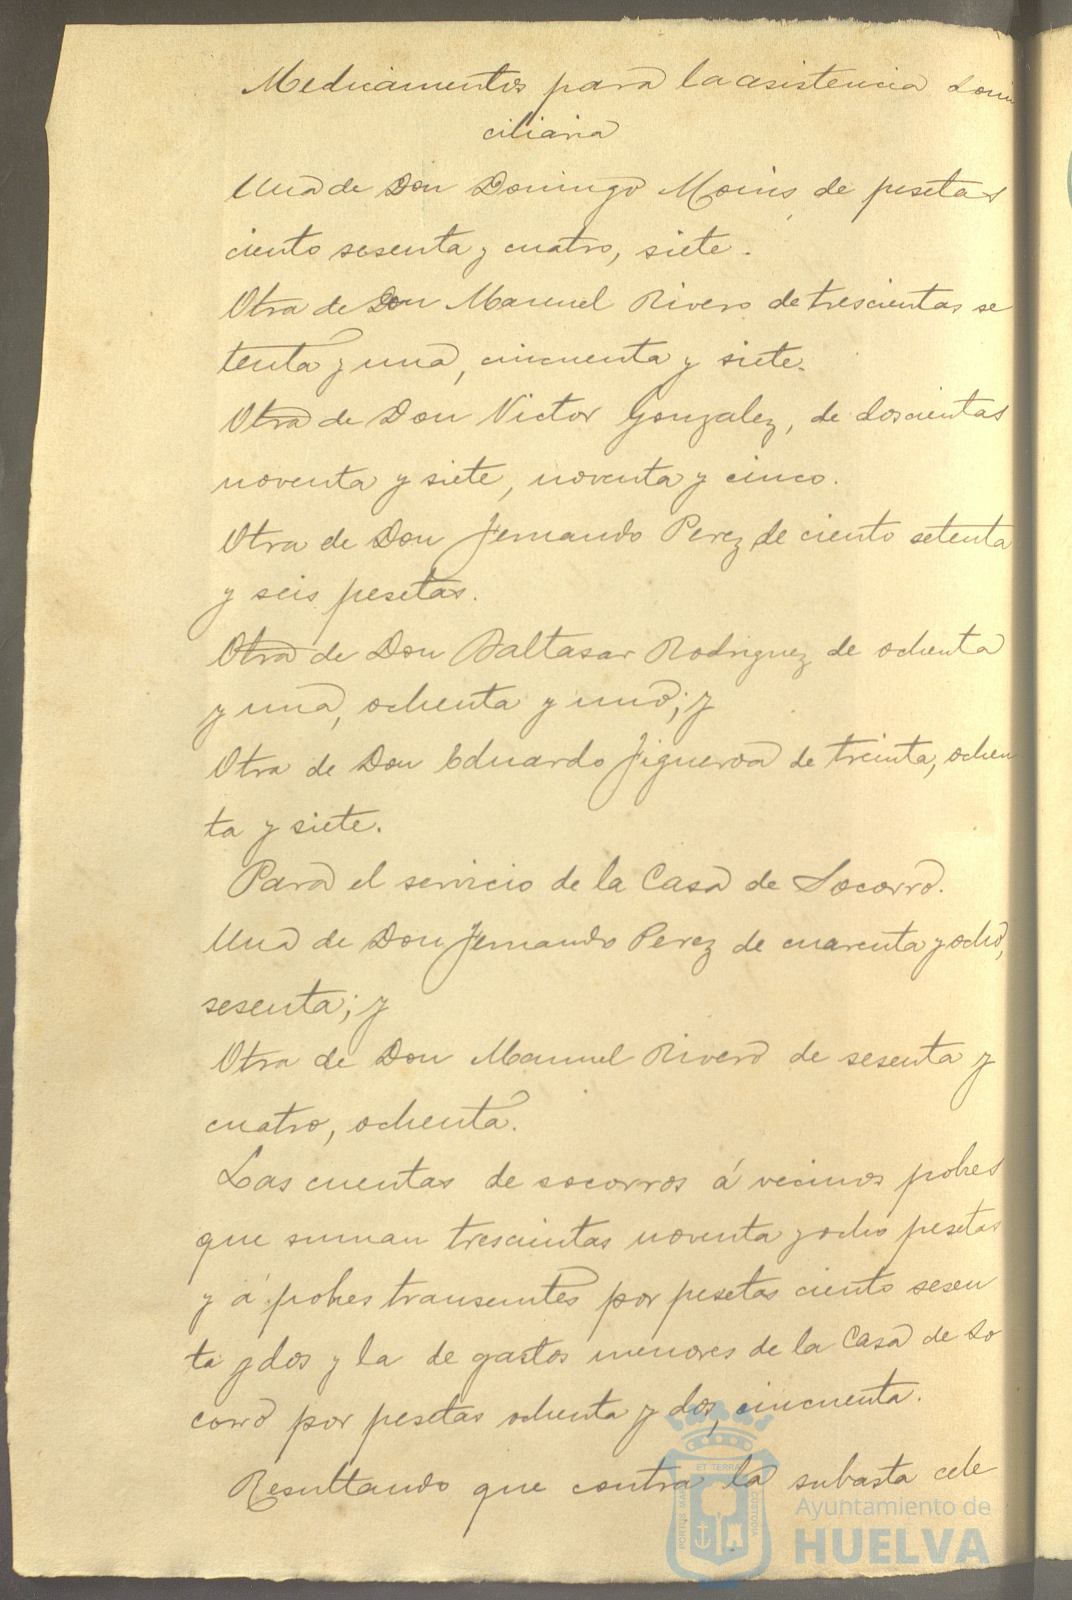 Medicamentos para la asistencia domi
ciliaria
Una de Don Domingo de pesetas
ciento sesenta y cuatro, siete.
Otra de Don Manuel Rivero de trescientas se
tenta y una, cincuenta y siete.
Otra de Don Victor Gonzalez, de doscientas
noventa y siete, noventa y cinco.
Otra de Don Fernando Perez de ciento setenta
y seis pesetas.
Otra de Don Baltasar Rodriguez de ochenta
y una, ochenta y uno; y
Otra de Don Eduardo Figueroa de treinta, ochen
ta y siete.
Para el servicio de la Casa de Socorro.
Una de Don Fernando Perez de cuarenta y ocho,
sesenta; y
Otra de Don Manuel Rivero de sesenta y
cuatro, ochenta.
Las cuentas de socorros á vecinos pobres
que suman trescientas noventa y ocho pesetas
y á pobres transeuntes por pesetas ciento sesen
ta y dos y la de gastos menores de la Casa de So
corro por pesetas ochenta y dos, cincuenta.
Resultando que contra la subasta cele
ET TERRÆ
PORTUS MARIS
CUSTODIA
Ayuntamiento de
HUELVA